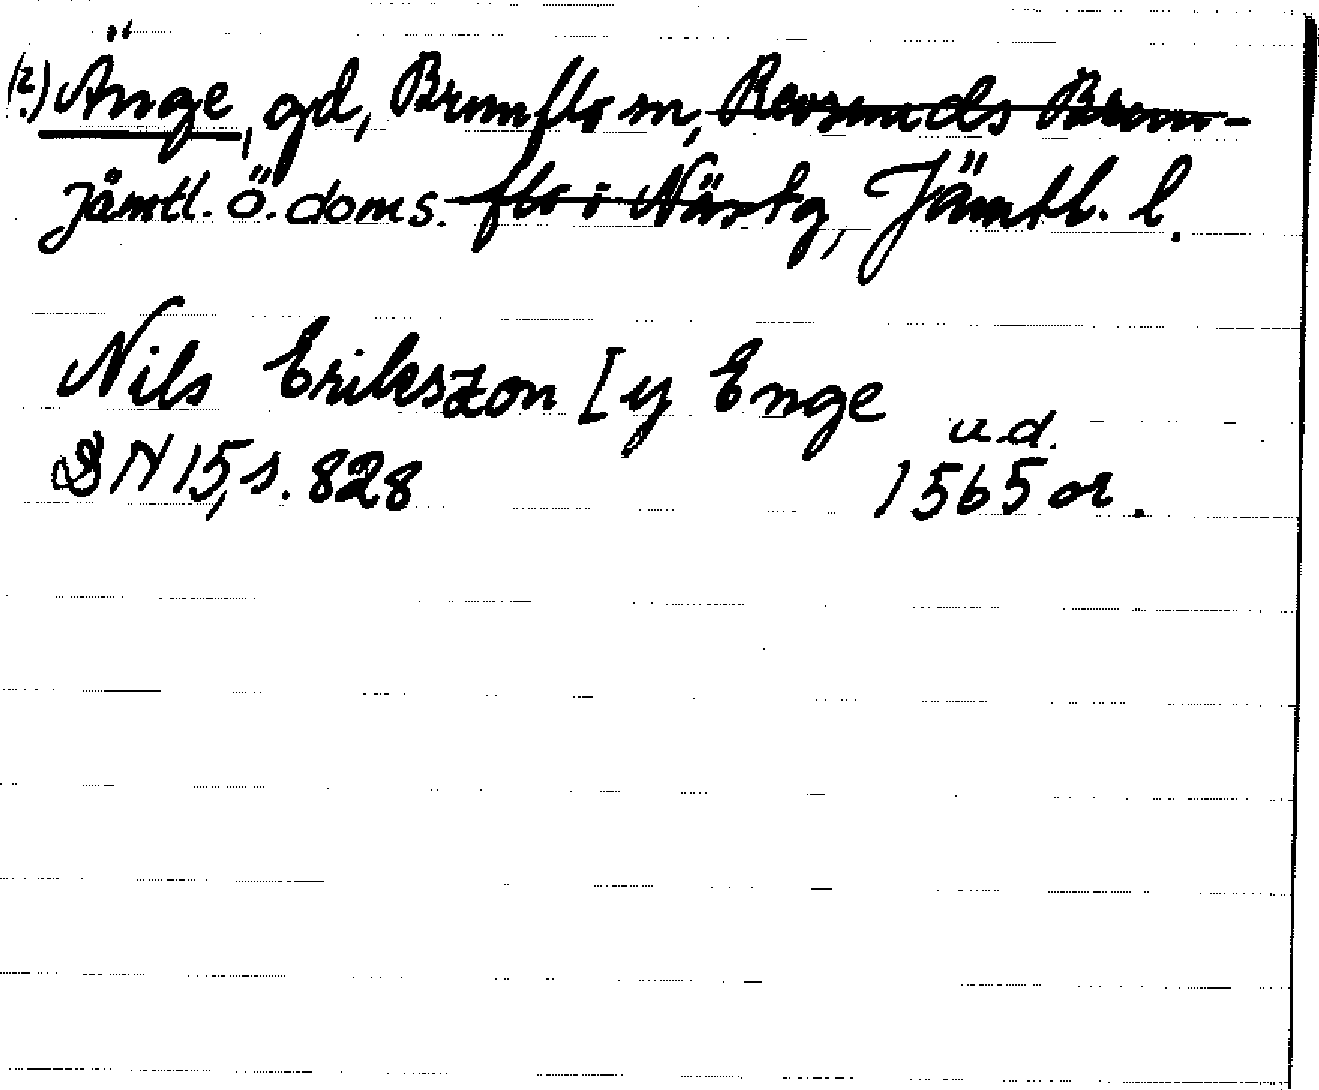 (2.) Änge, gd, Brunflo sn, Revsunds Brun-
Jämtl. ö. doms. flo i Närtg, Jämtl. l.
Nils Erikszon [ y Enge
DN 15, s. 828 u.d.
1565 or.